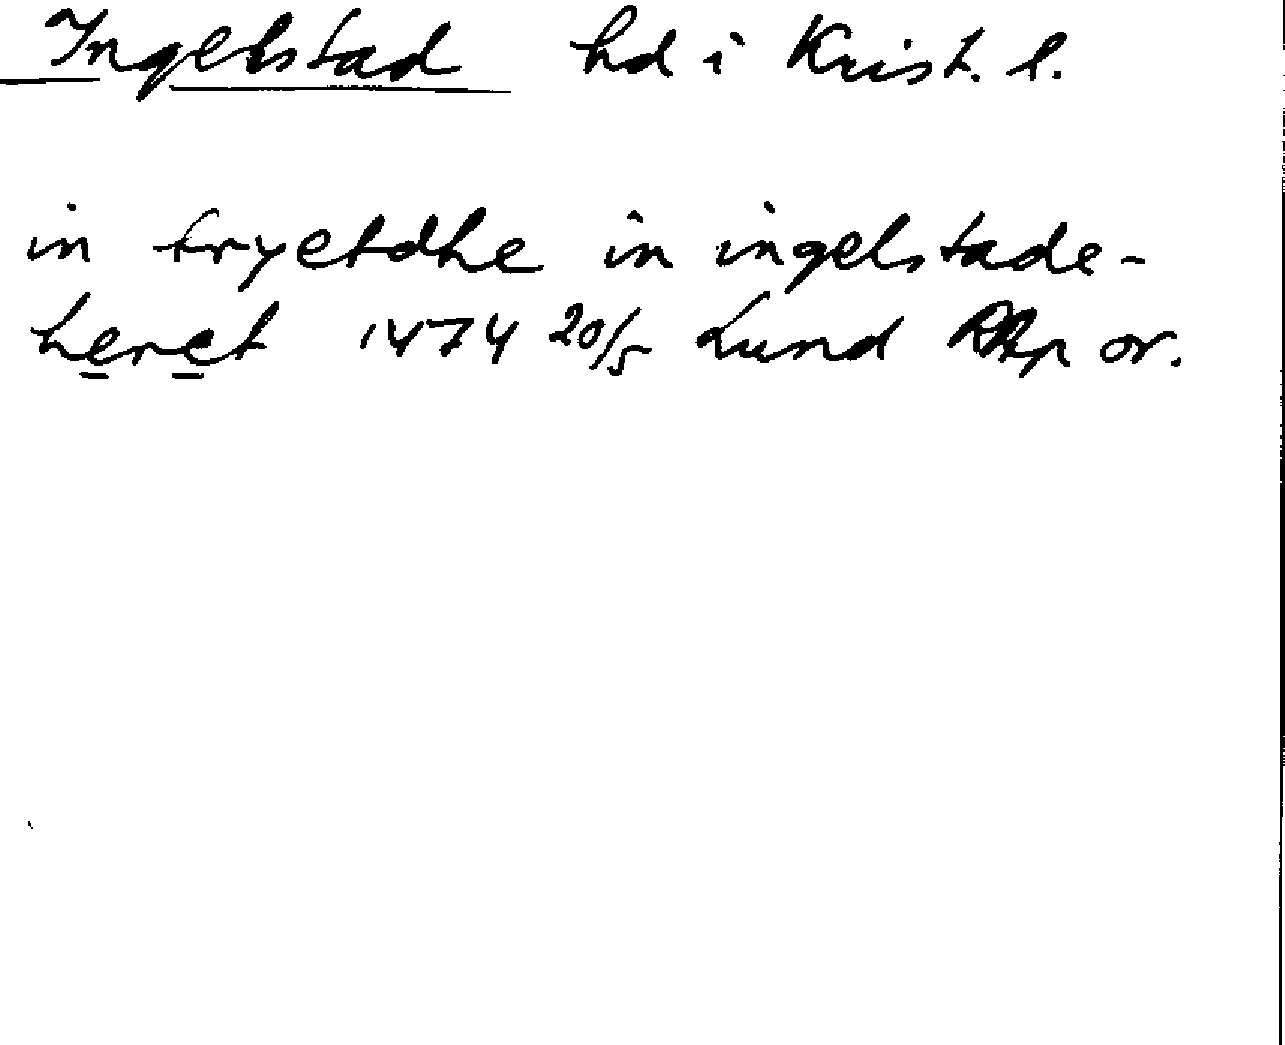 Ingelstad hd i Krist. l.
in tryetdhe in ingelstade-
heret 1474 20/5 Lund RAp or.